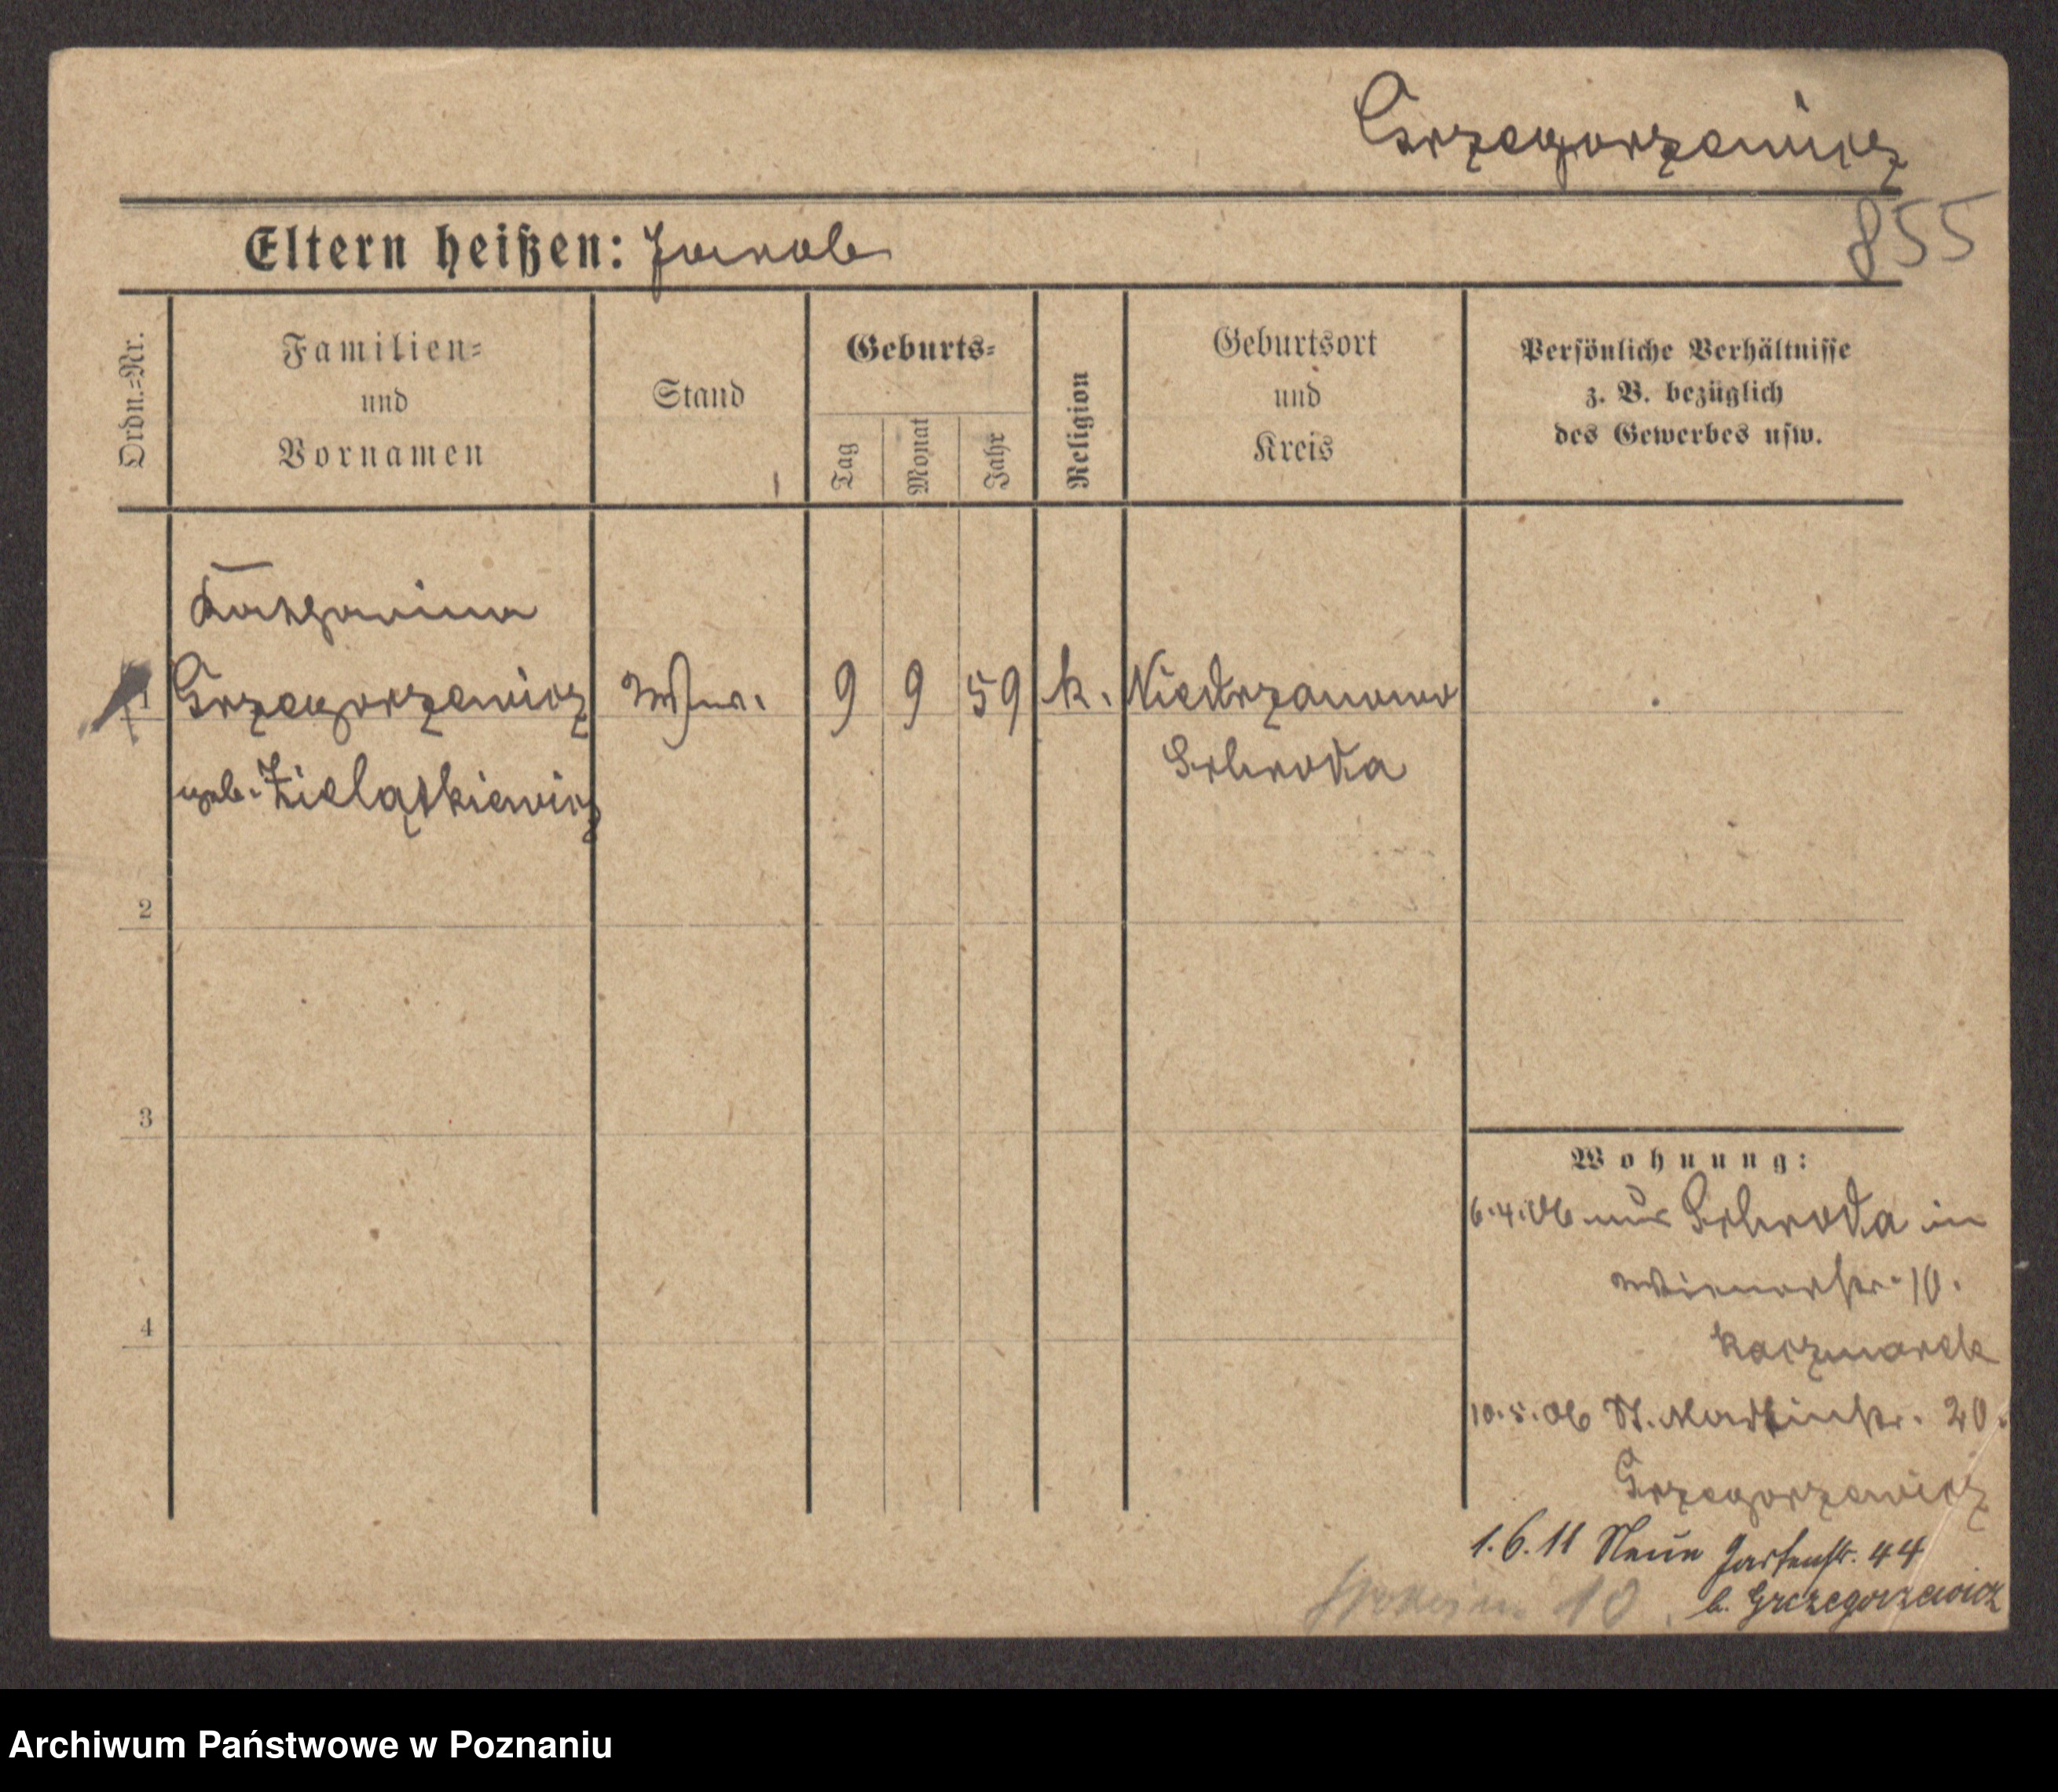 Grzegorzewicz
855
Eltern heißen: Jacob
Ordn.=Nr.
Familien=
und
Vornamen
Stand
Geburts=
Tag
Monat
Jahr
Religion
Geburtsort
und
Kreis
Persönliche Verhältnisse
z. B. bezüglich
des Gewerbes usw.
Katharina
1 Grzegorzewicz Wwe. 9 9 59 k. Niedrzanowo
geb. Zielaskiewicz Schroda
2
3
4
Wohnung:
6.4.06 aus Schroda in
Wienerstr. 10.
Kaczmarek
10.5.06 St. Martinstr. 20.
Grzegorzewicz
1.6.11 Neue Gartenstr. 44
b. Grzegorzewicz
10
Archiwum Państwowe w Poznaniu